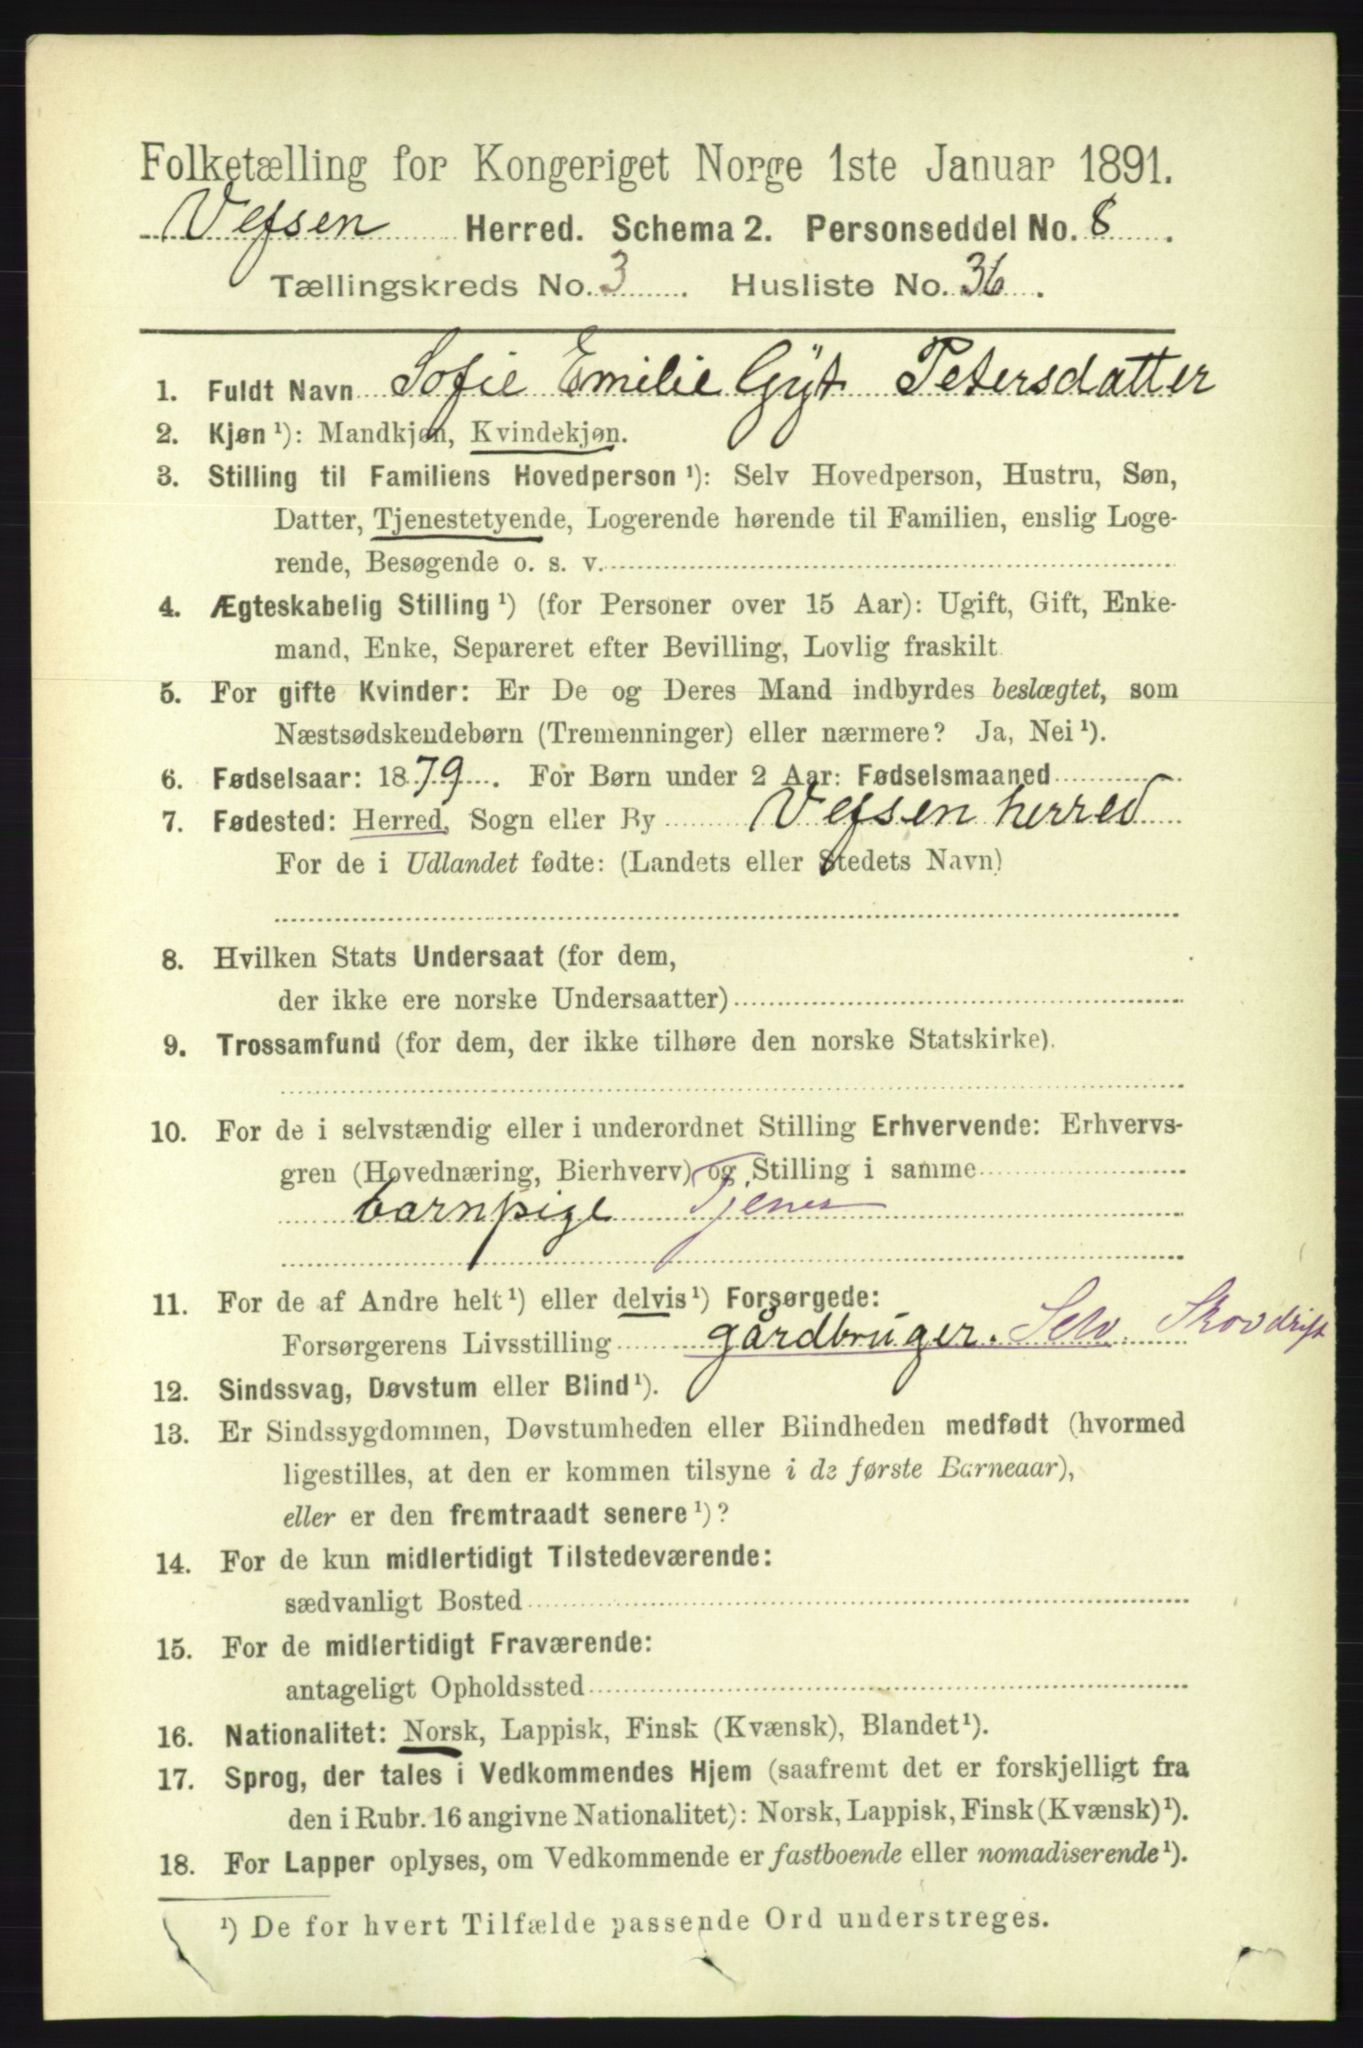 Folketælling for Kongeriget Norge 1ste Januar 1891.
Vefsen Herred. Schema 2. Personseddel No. 8.
Tællingskreds No. 3. Husliste No. 36.
1. Fuldt Navn Sofie Emilie Gÿt Petersdatter
2. Kjøn ¹): Mandkjøn, Kvindekjøn.
3. Stilling til Familiens Hovedperson ¹): Selv Hovedperson, Hustru, Søn,
Datter, Tjenestetyende, Logerende hørende til Familien, enslig Loge-
rende, Besøgende o. s. v.
4. Ægteskabelig Stilling ¹) (for Personer over 15 Aar): Ugift, Gift, Enke-
mand, Enke, Separeret efter Bevilling, Lovlig fraskilt
5. For gifte Kvinder: Er De og Deres Mand indbyrdes beslægtet, som
Næstsødskendebørn (Tremenninger) eller nærmere? Ja, Nei ¹).
6. Fødselsaar: 1879. For Børn under 2 Aar: Fødselsmaaned
7. Fødested: Herred, Sogn eller By Vefsen herred
For de i Udlandet fødte: (Landets eller Stedets Navn)
8. Hvilken Stats Undersaat (for dem,
der ikke ere norske Undersaatter)
9. Trossamfund (for dem, der ikke tilhøre den norske Statskirke).
10. For de i selvstændig eller i underordnet Stilling Erhvervende: Erhvervs-
gren (Hovednæring, Bierhverv) og Stilling i samme
barnpige Tjenes
11. For de af Andre helt ¹) eller delvis ¹) Forsørgede:
Forsørgerens Livsstilling gårdbruger. Selv. Skovdrift
12. Sindssvag, Døvstum eller Blind ¹).
13. Er Sindssygdommen, Døvstumheden eller Blindheden medfødt (hvormed
ligestilles, at den er kommen tilsyne i de første Barneaar),
eller er den fremtraadt senere ¹)?
14. For de kun midlertidigt Tilstedeværende:
sædvanligt Bosted
15. For de midlertidigt Fraværende:
antageligt Opholdssted
16. Nationalitet: Norsk, Lappisk, Finsk (Kvænsk), Blandet ¹).
17. Sprog, der tales i Vedkommendes Hjem (saafremt det er forskjelligt fra
den i Rubr. 16 angivne Nationalitet): Norsk, Lappisk, Finsk (Kvænsk) ¹).
18. For Lapper oplyses, om Vedkommende er fastboende eller nomadiserende ¹).
¹) De for hvert Tilfælde passende Ord understreges.